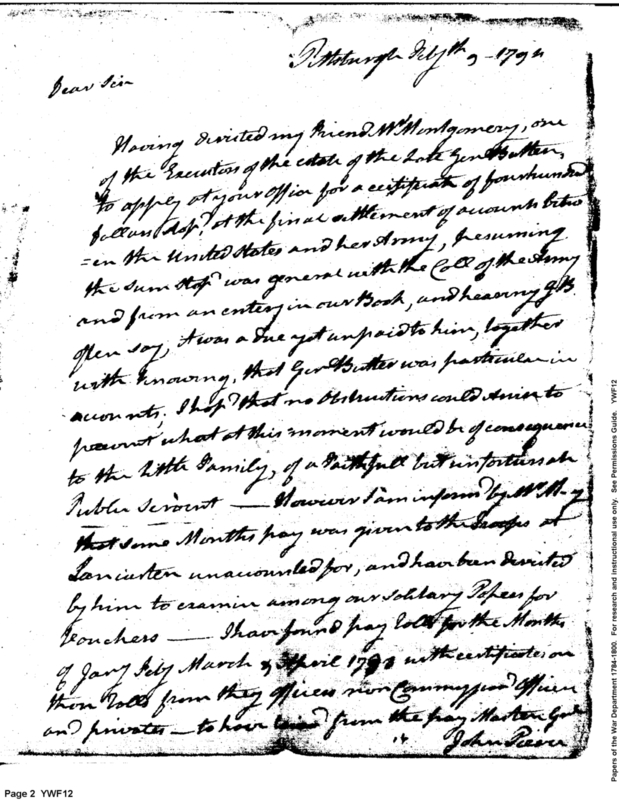 Pittsburgh Feby th 9 - 1794
Dear Sir
Having divited my Friend Mr Montgomery, one
of the Executors of the estate of the Late Genl Butler,
to apply at your Office for a certificate of four hundred
Dollars stopd at the final settlement of accounts betwe
=en the United States and her Army, Presuming
the sum stopd was general with the Coll of the Army
and from an entery in our Book, and hearing G.B.
often say, it was a due yet unpaid to him, together
with knowing, that Genl Butler was particular in
accounts, I hopd that no obstructions could arise to
prevent what at this moment would be of consequence
to the Little Family, of a Faithfull but unfortunate
Public Servent — However I am informd by Mr M-y
that some Months pay was given to the Troops at
Lancaster unaccounted for, and have been divited
by him to examin among our solitary Papers for
Vouchers — I have found pay Rolls for the Months
of Jany Feby March & April with certificates on
thon Rolls from they officers non Commissiond Officers
and privates — to have from the pay Master Genl
John Pierce
Page 2 YWF12
Papers of the War Department 1784-1800. For research and instructional use only. See Permissions Guide. YWF12